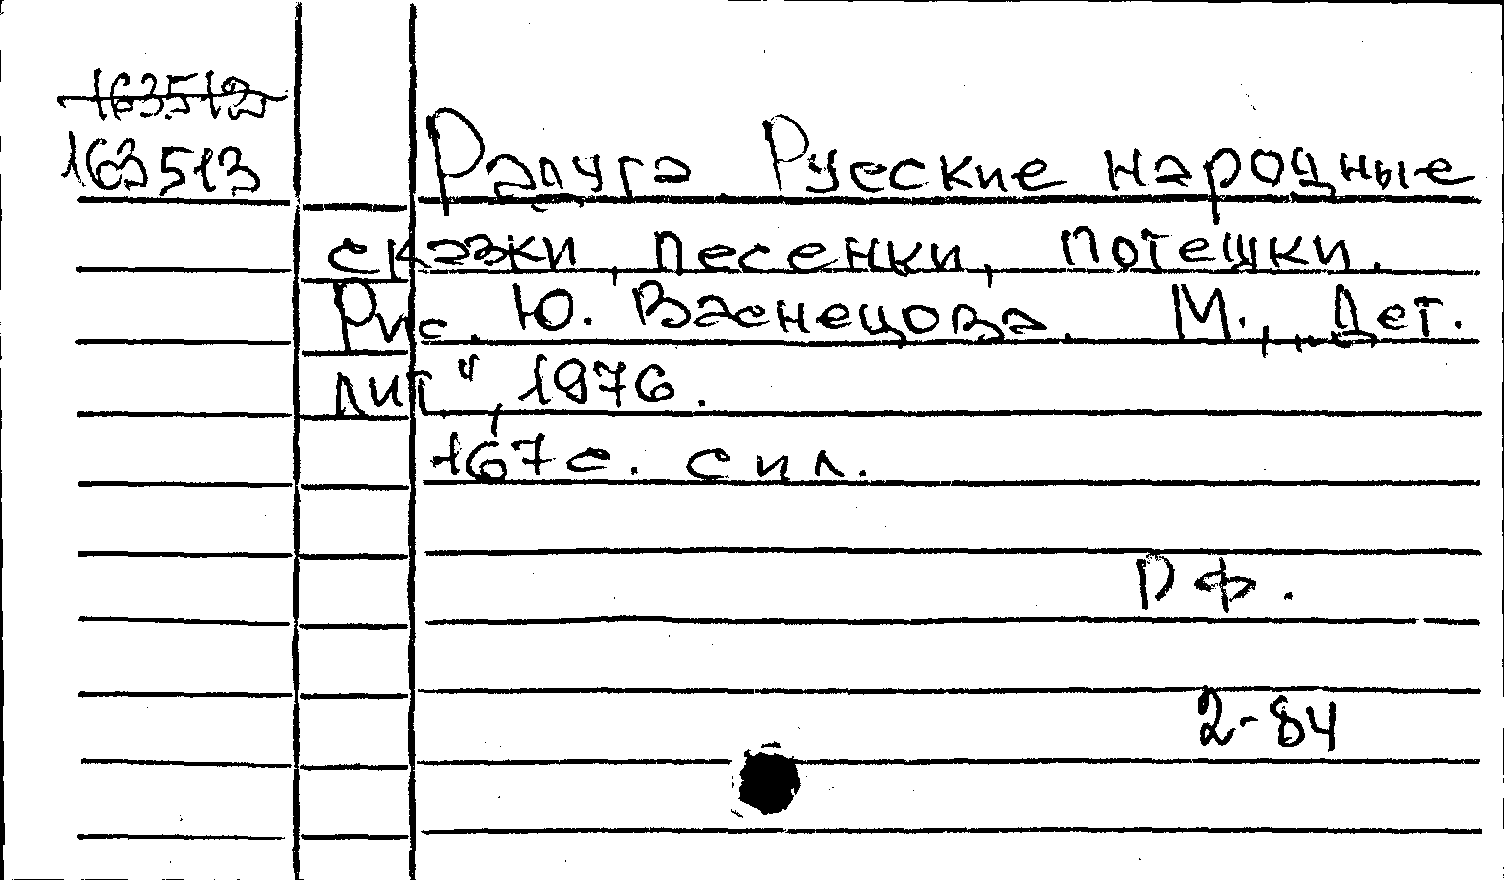 ~~163512~~
163513
Радуга. Русские народные
сказки, песенки, потешки.
Рис. Ю. Васнецова. М., „Дет.
лит", 1976.
167с. с ил.
РФ.
2-84